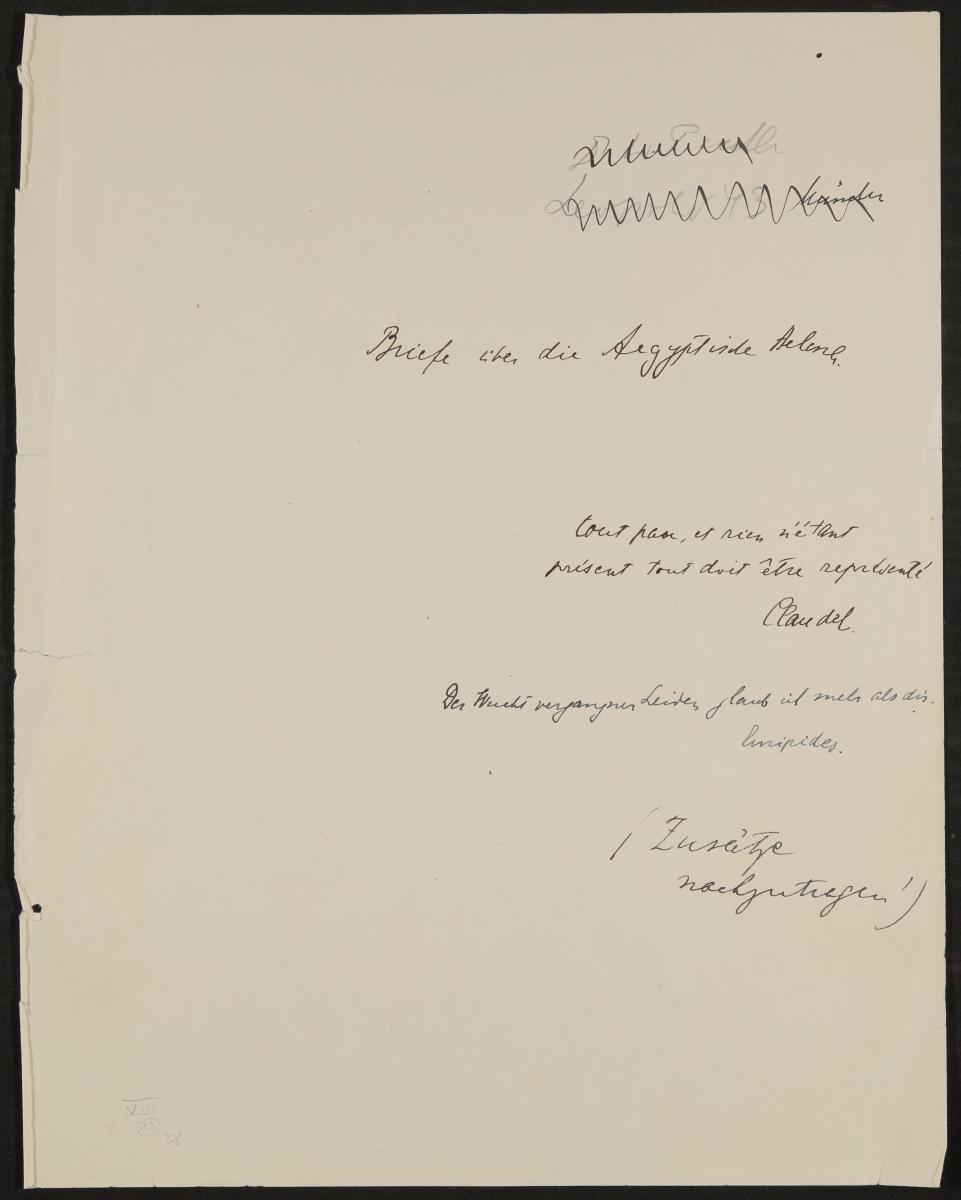 Briefe über die Aegyptische Helena.
tout passe, et rien n'étant
présent tout doit être représenté
Claudel.
Der Wucht vergangner Leiden glaub ich mehr als dir.
Euripides.
(Zusätze
nachzutragen!)
VIII
13
38